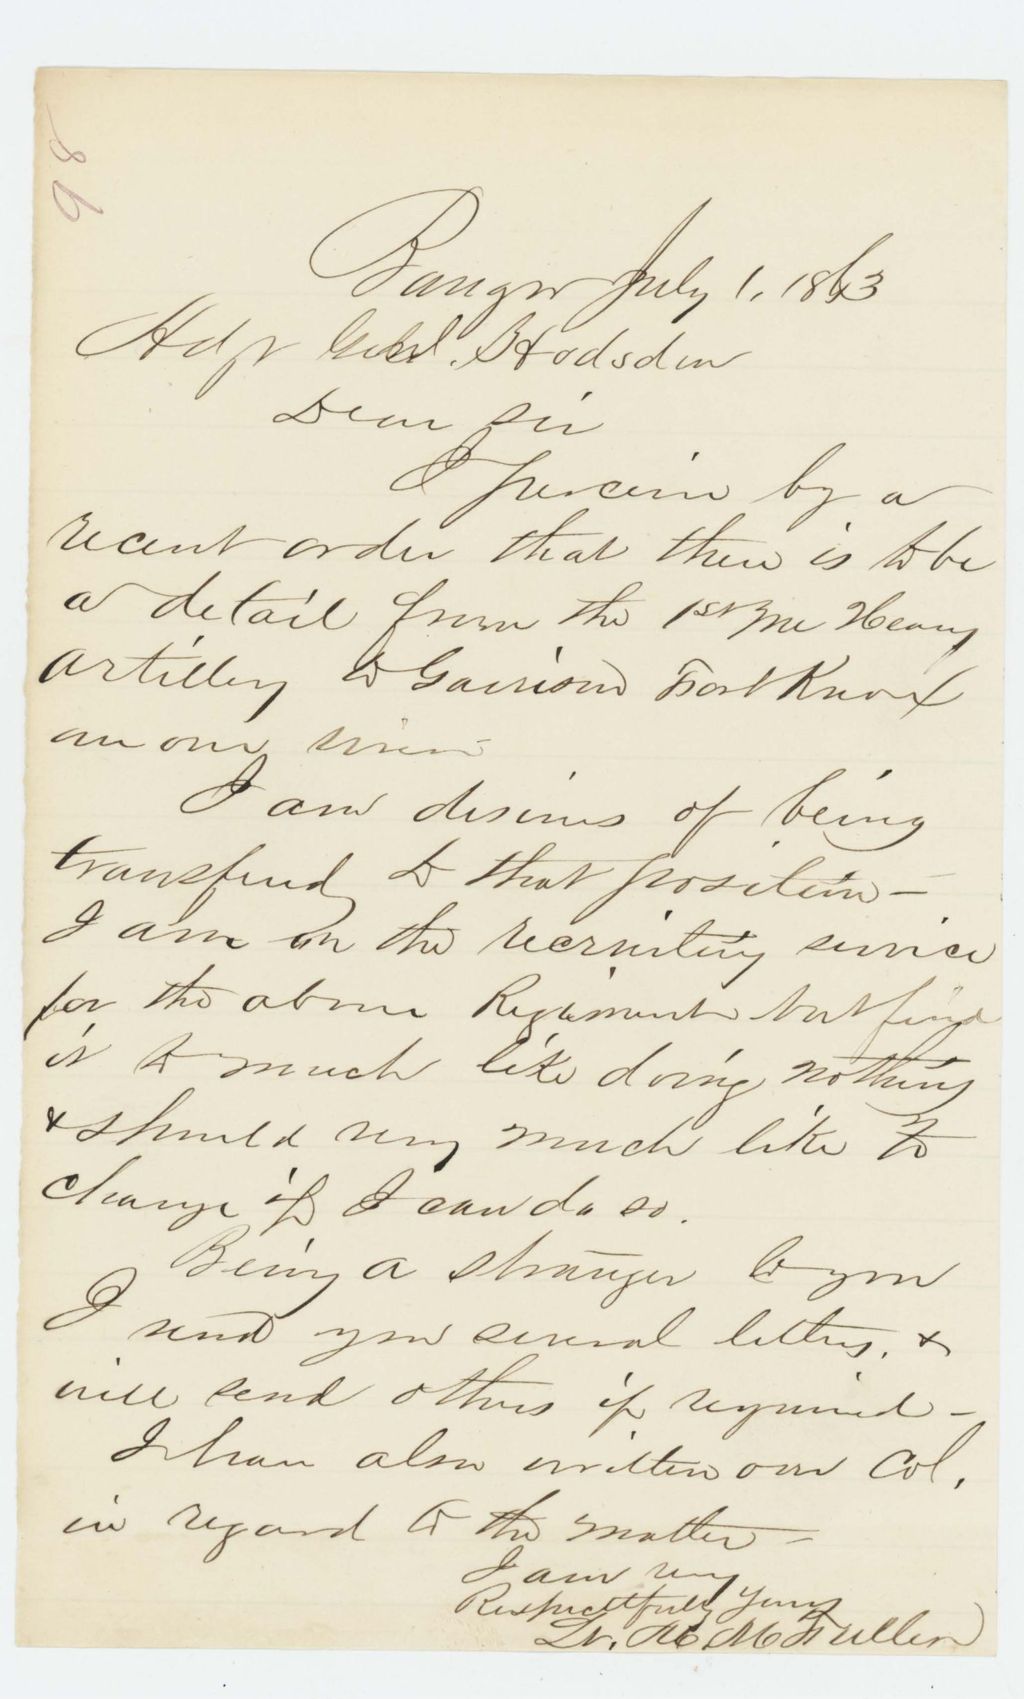 98
Bangor July 1, 1863
Adjt Genl. Hodsdon
Dear Sir
I perceive by a
recent order that there is to be
a detail from the 1st Me Heavy
Artillery to Garrison Fort Knox
on our river
I am desirous of being
transfered to that position -
I am on the recruiting service
for the above Regiment but find
it to much like doing nothing
& should very much like to
change if I can do so.
Being a stranger to you
I send you several letters, &
will send others if required -
I have also written our Col.
in regard to the matter -
I am very
Respectfully yours
Lt. Fuller